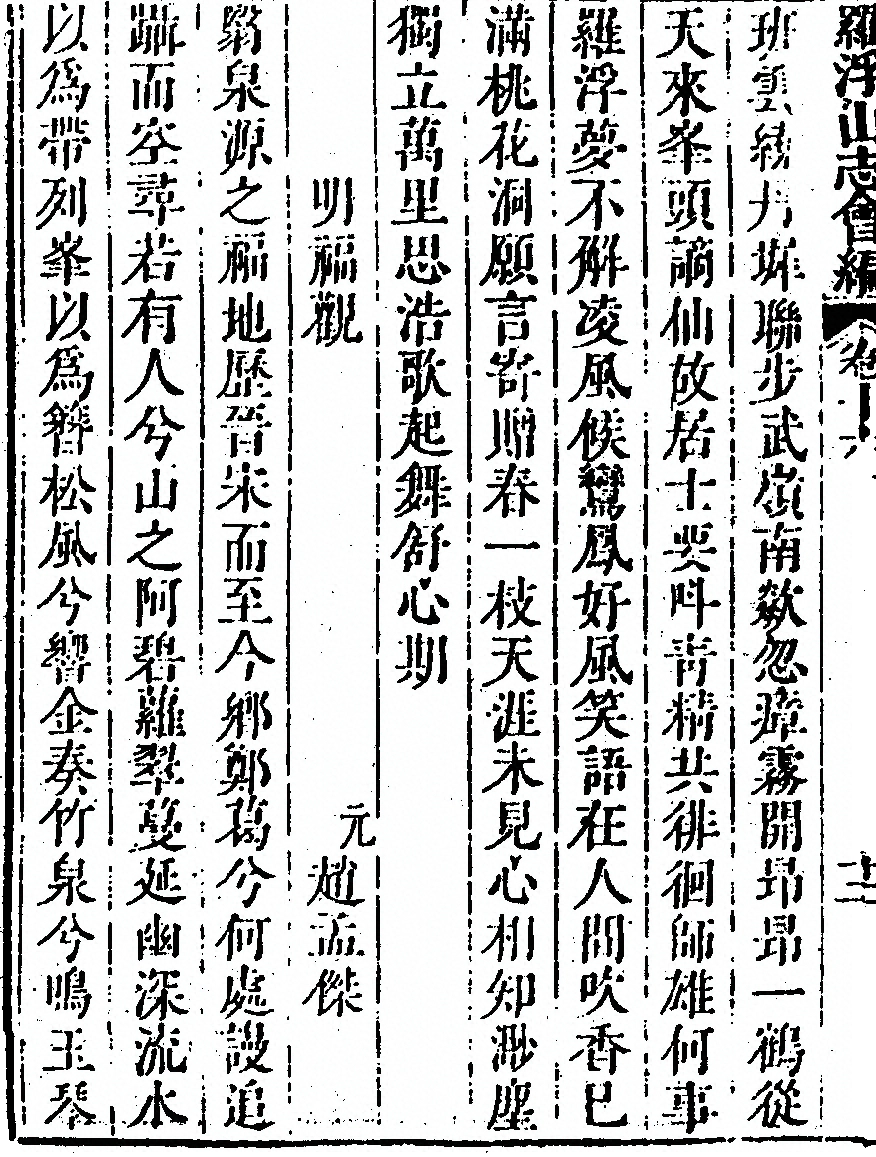 羅浮山志會編 卷十六 十二
班雲繞丹墀聯步武嶺南歘忽瘴霧開昂昂一鶴從
天來峯頭謫仙故居士畀叫青精共徘徊師雄何事
羅浮夢不解凌風候鸞鳳好風笑語在人間吹香已
滿桃花洞願言寄贈春一枝天涯未見心相知渺塵
獨立萬里思浩歌起舞舒心期
明福觀
元趙孟傑
翳泉源之福地歷晉宋而至今鄉鄭葛兮何處謾追
躡而空尋若有人兮山之阿碧蘿翠蔓延幽深流水
以爲帶列峯以爲簪松風兮響金奏竹泉兮鳴玉琴